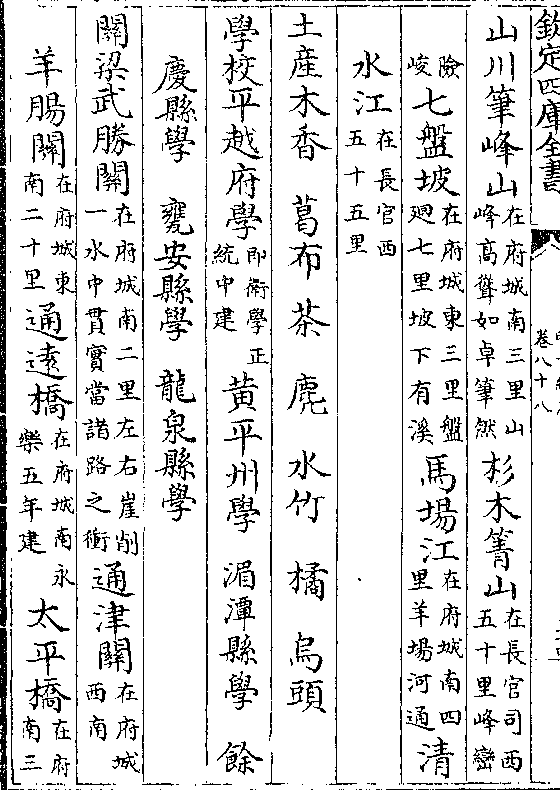 欽定四庫全書
卷八十八
山川筆峰山在府城南三里山峰高聳如卓筆然杉木箐山在長官司西五十里峰巒
險峻七盤坡在府城東三里盤廻七里坡下有溪馬場江在府城南四里羊場河通清
水江在長官西五十五里
土產木香 葛布茶 鹿 水竹 橘 烏頭
學校平越府學即衛學正統中建黃平州學 湄潭縣學 餘
慶縣學 甕安縣學 龍泉縣學
關梁武勝關在府城南二里左右崖削一水中貫實當諸路之衝通津關在府城西南
羊腸關在府城東南二十里通遠橋在府城南永樂五年建太平橋在府南三